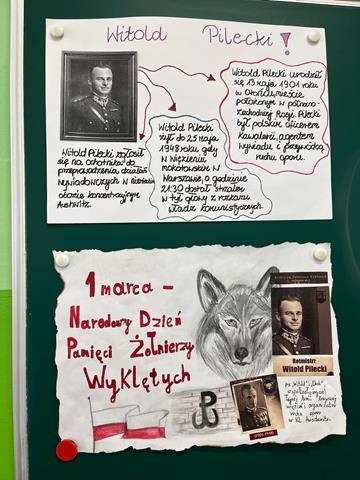 Witold Pilecki!
Witold Pilecki urodził
się 13 maja 1901 roku
w Ołońcu, mieście
położonym w północno-
zachodniej Rosji. Pilecki
był polskim oficerem
kawalerii, agentem
wywiadu i przywódcą
ruchu oporu.
Witold Pilecki
żył do 25 maja
1948 roku, gdy
w Więzieniu
mokotowskim w
Warszawie, o godzinie
21:30 dostał strzałem
w tył głowy z rozkazu
władz komunistycznych.
Witold Pilecki zgłosił
się na ochotnika do
przeprowadzenia działań
wywiadowczych w
obozie koncentracyjnym
Auschwitz.
1 marca -
Narodowy Dzień
Pamięci Żołnierzy
Wyklętych
Rotmistrz
Witold Pilecki
(1901-1948)
ps. „Witold",
Tajnej Armii
i organizator
ruchu oporu
w KL Auschwitz.